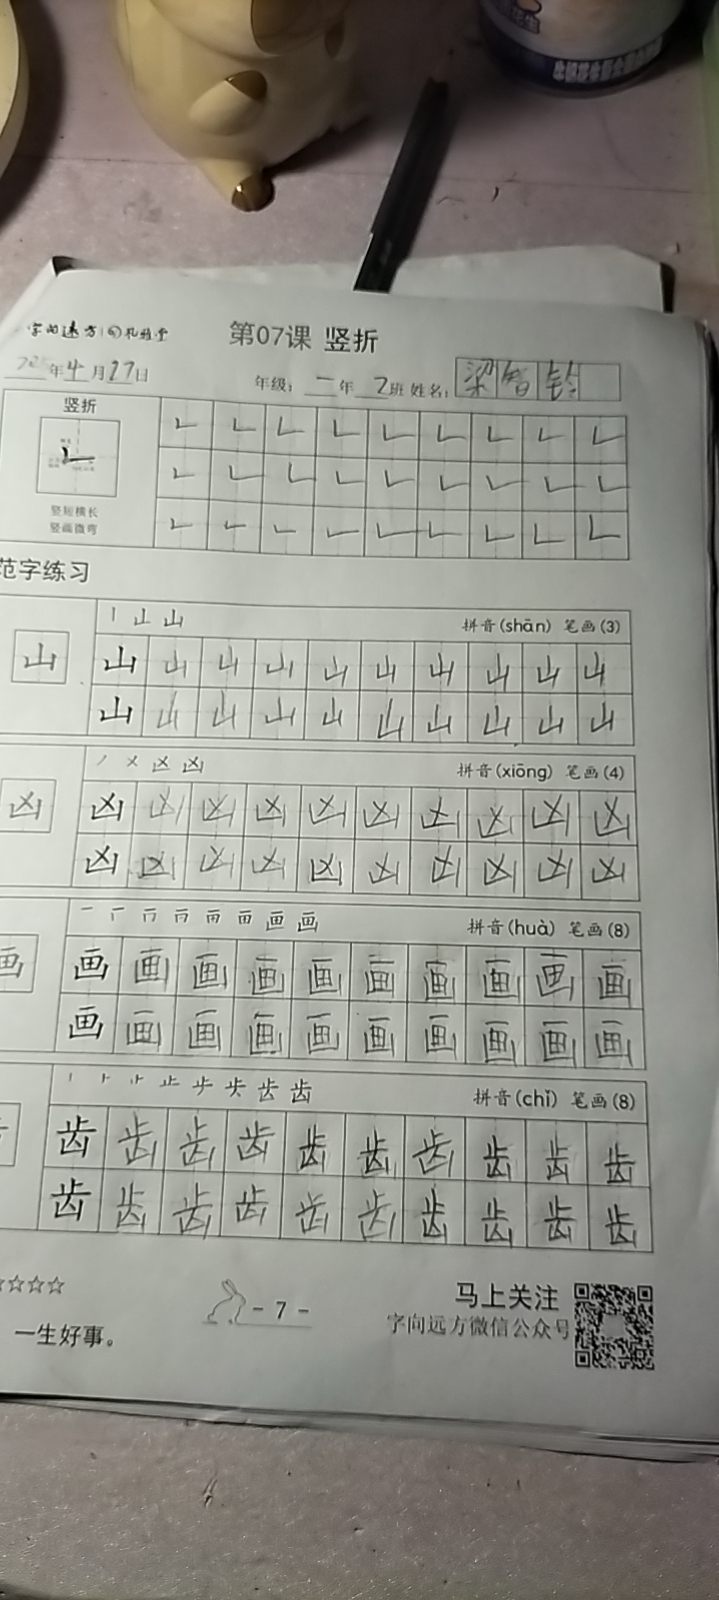 字向远方
第07课 竖折
年4月27日 年级：二年2班 姓名：梁智铃
竖折
竖短横长
竖画微弯
范字练习
丨 山 山 拼音(shān) 笔画(3)
山 山 山 山 山 山 山 山 山 山 山
山 山 山 山 山 山 山 山 山 山
凶 凶 拼音(xiōng) 笔画(4)
凶 凶 凶 凶 凶 凶 凶 凶 凶 凶 凶
凶 凶 凶 凶 凶 凶 凶 凶 凶 凶
画 画 拼音(huà) 笔画(8)
画 画 画 画 画 画 画 画 画 画 画
画 画 画 画 画 画 画 画 画 画
齿 齿 拼音(chǐ) 笔画(8)
齿 齿 齿 齿 齿 齿 齿 齿 齿 齿
齿 齿 齿 齿 齿 齿 齿 齿 齿 齿
☆☆☆☆
- 7 -
马上关注
字向远方微信公众号
一生好事。